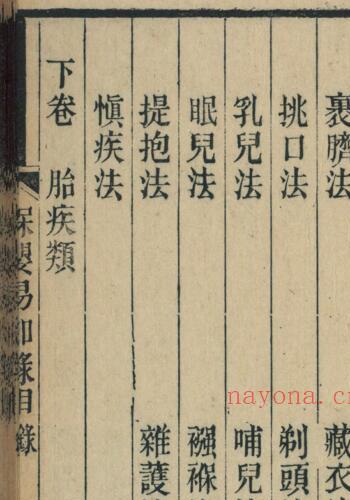 裹臍法 藏衣
挑口法 剃頭
乳兒法 哺兒
眠兒法 襁褓
提抱法 雜護
慎疾法
下卷 胎疾類
保嬰易知錄目錄
nayona.c